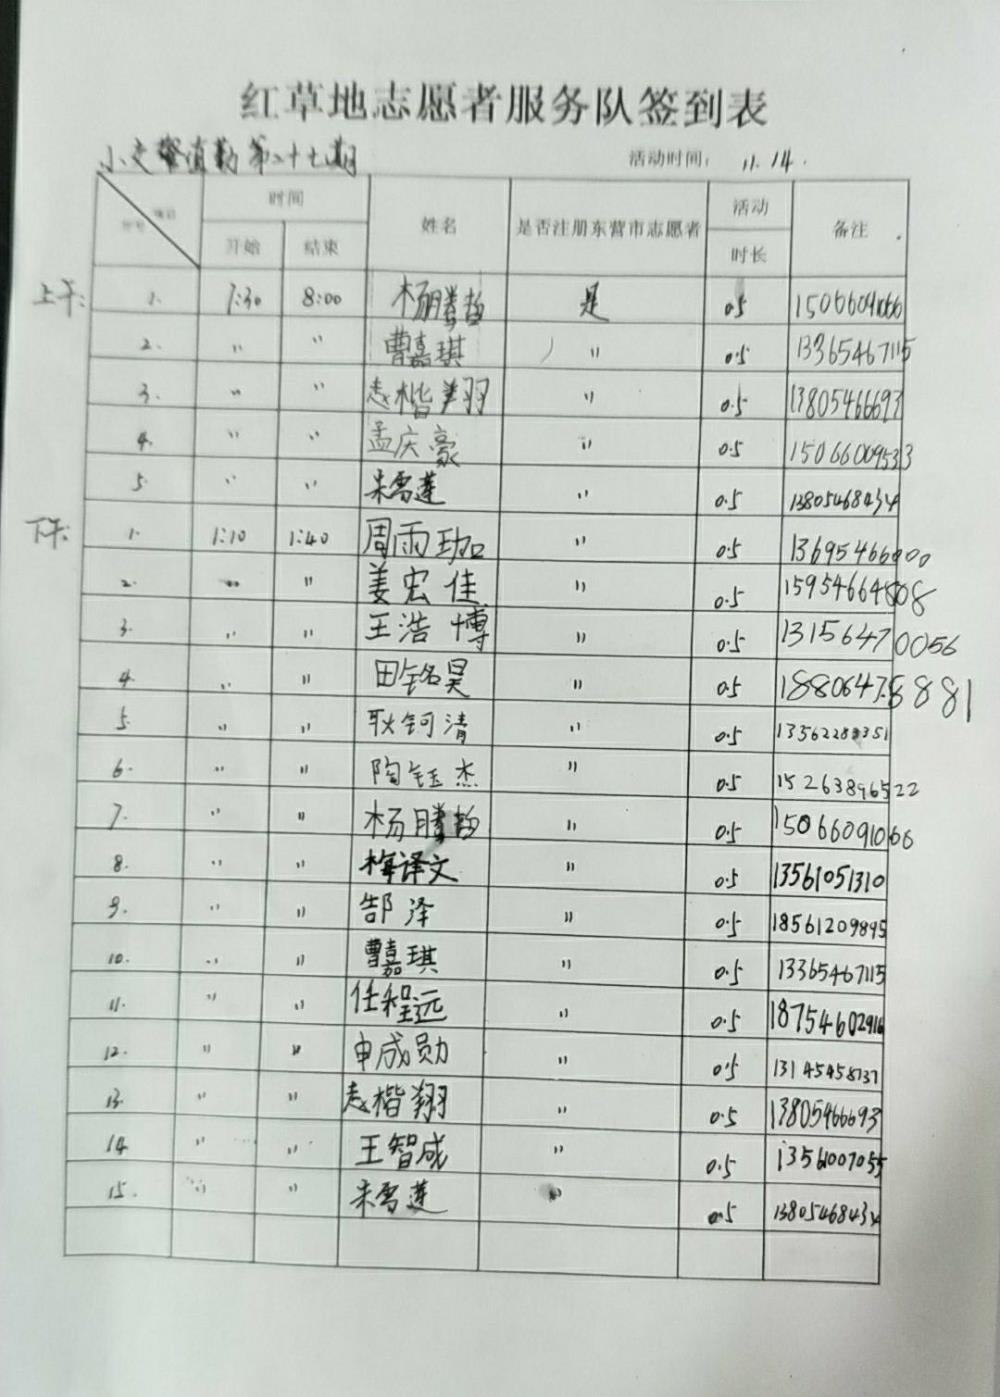 红草地志愿者服务队签到表
小交警值勤第二十七期 活动时间: 11.14.
项目 时间 姓名 是否注册东营市志愿者 活动 备注
开始 结束 时长
上午: 1. 7:30 8:00 杨腾哲 是 0.5 15066091066
2. " " 曹嘉琪 " 0.5 13365467115
3. " " 楷翔 " 0.5 13805466693
4. " " 孟庆豪 " 0.5 15066009533
5. " " 朱雪莲 " 0.5 13805468434
下午: 1. 1:10 1:40 周雨珈 " 0.5 13695466000
2. " " 姜宏佳 " 0.5 15954664808
3. " " 王浩博 " 0.5 13156470056
4. " " 田铭昊 " 0.5 18806478881
5. " " 耿钶清 " 0.5
6. " " 陶钰杰 " 0.5 15263896522
7. " " 杨腾哲 " 0.5 15066091066
8. " " 梅译文 " 0.5 13561051310
9. " " 郜泽 " 0.5 18561209895
10. " " 曹嘉琪 " 0.5 13365467115
11. " " 任程远 " 0.5 18754602916
12. " " 申成勋 " 0.5 13145458137
13. " " 楷翔 " 0.5 13805466693
14 " " 王智成 " 0.5 13561007055
15. " " 朱雪莲 " 0.5 13805468434